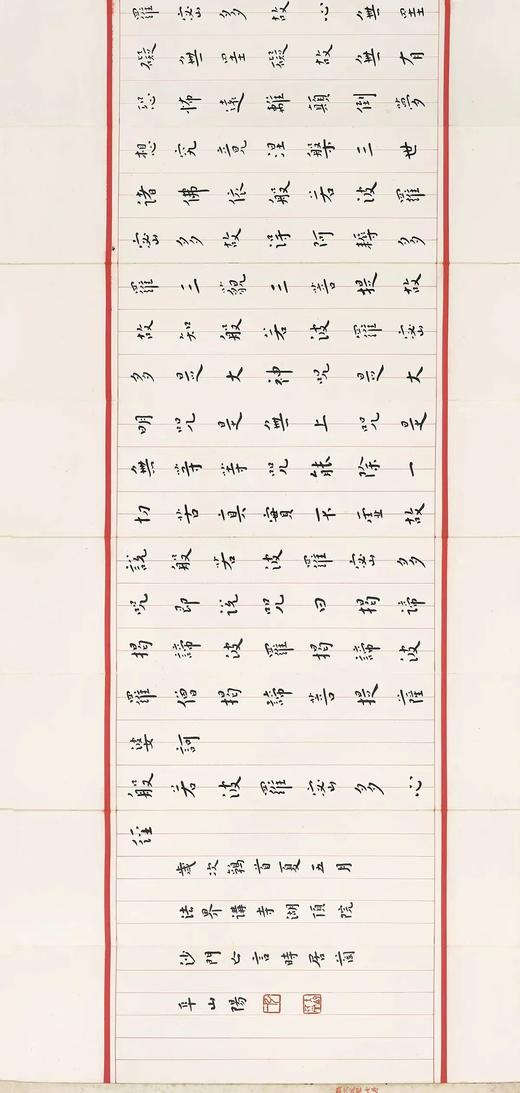 羅密多故心無罣
礙無罣礙故無有
恐怖遠離顛倒夢
想究竟涅槃三世
諸佛依般若波羅
密多故得阿耨多
羅三藐三菩提故
故知般若波羅密
多是大神呪是大
明呪是無上呪是
無等等呪能除一
切苦真實不虛故
說般若波羅密多
呪即說呪曰揭諦
揭諦波羅揭諦波
羅僧揭諦菩提薩
婆訶
般若波羅密多心
經
歲次鶉首夏五月
法界講寺湖頂院
沙門亡言時居
阜山陽